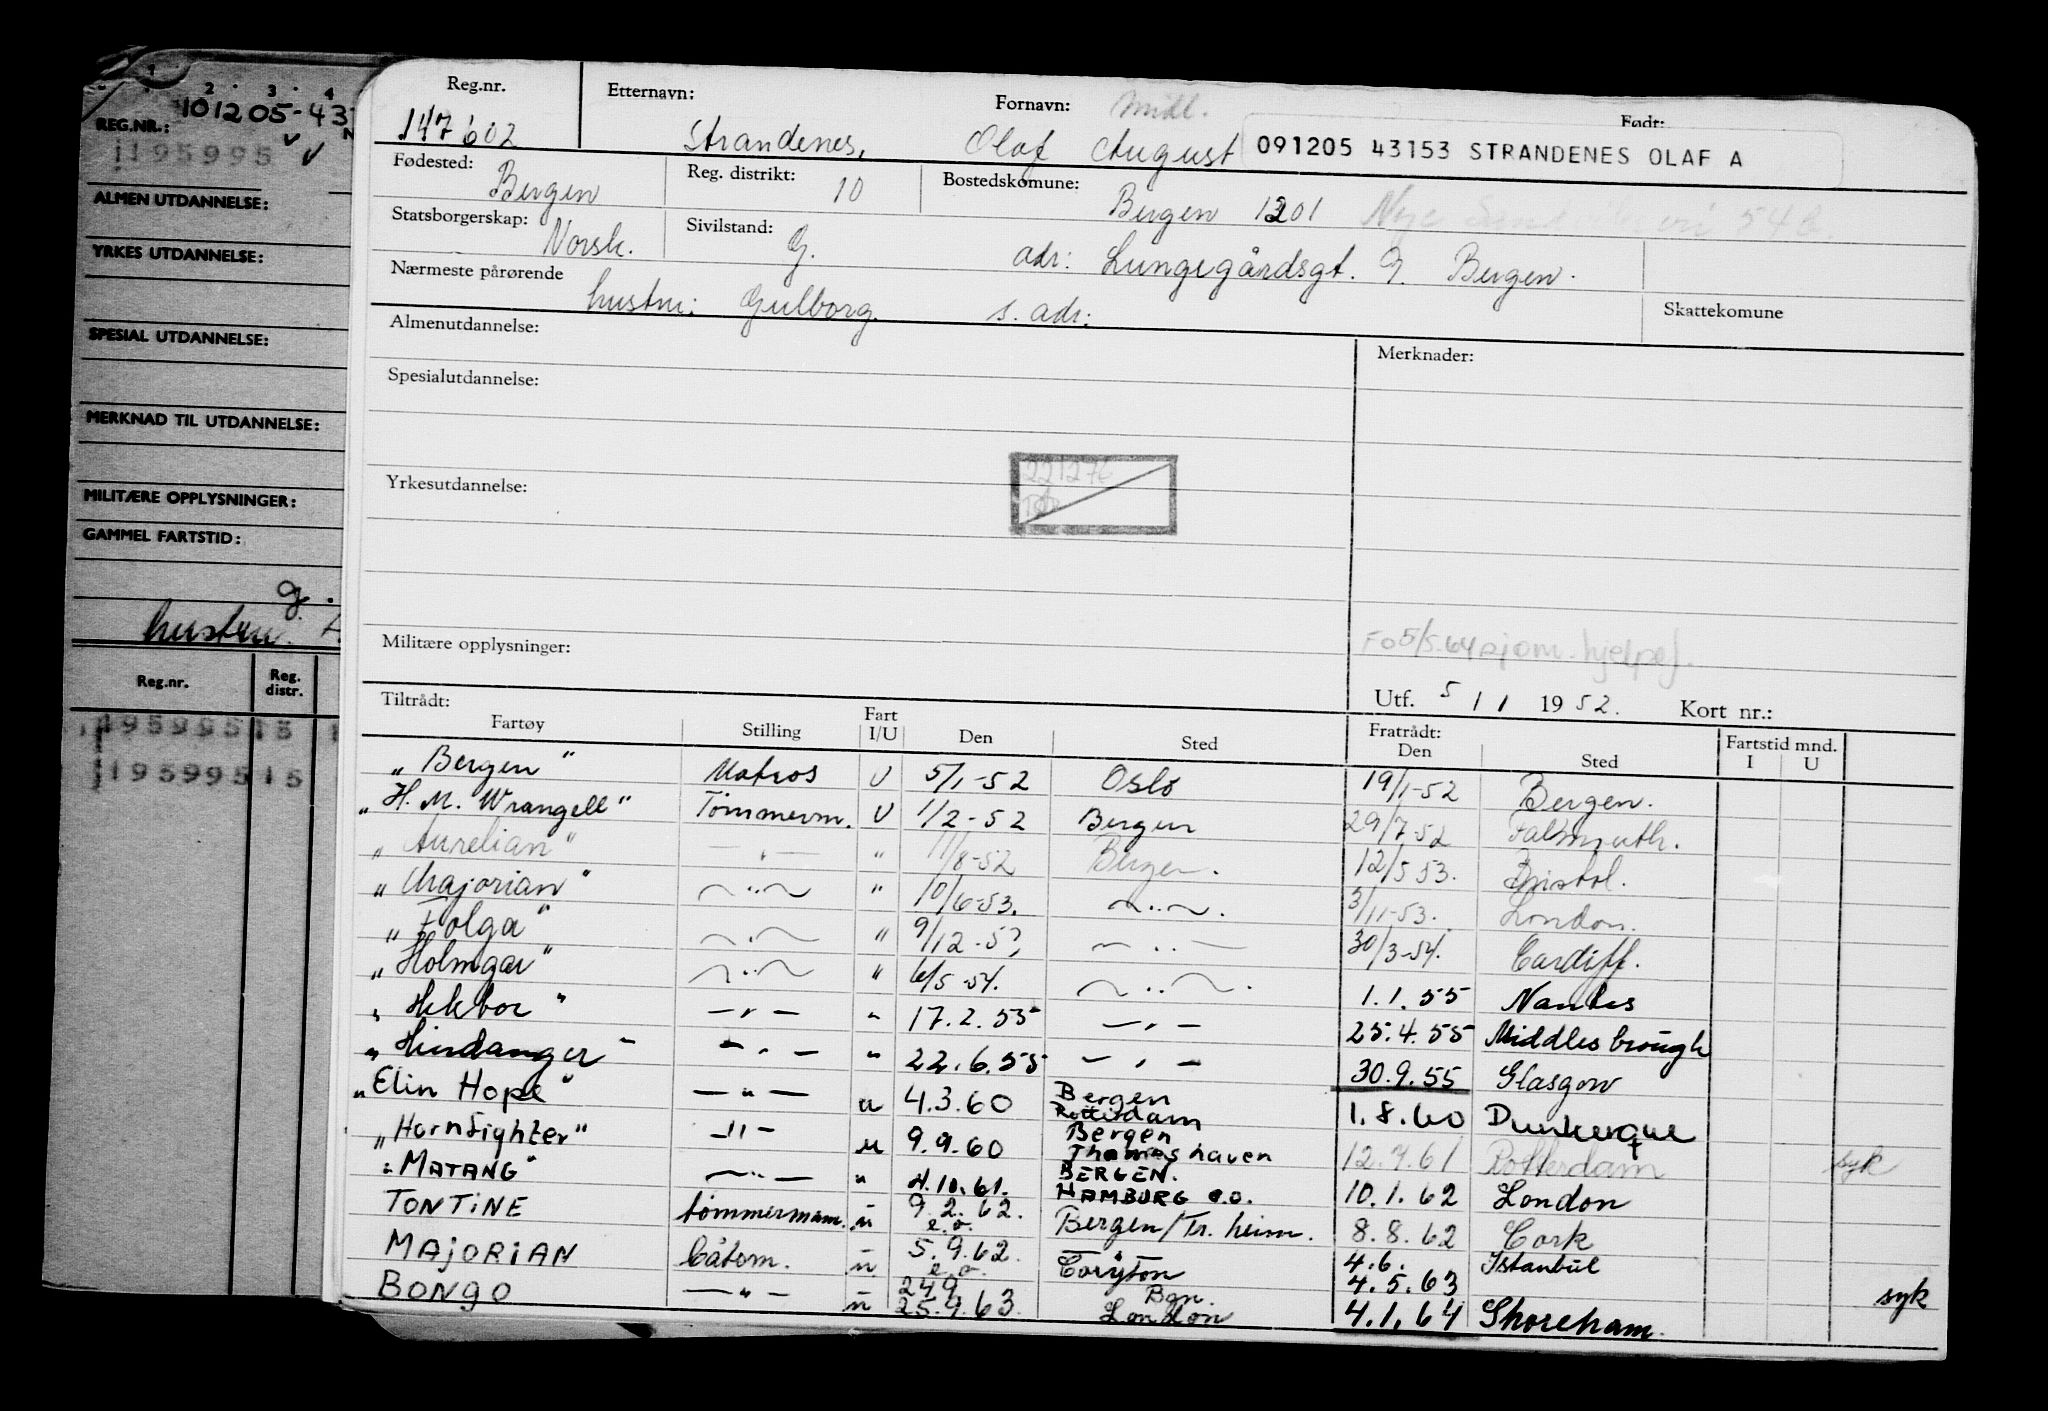 1 2 3 4
101205-43
REG.NR.:
195995
ALMEN UTDANNELSE:
YRKES UTDANNELSE:
SPESIAL UTDANNELSE:
MERKNAD TIL UTDANNELSE:
MILITÆRE OPPLYSNINGER:
GAMMEL FARTSTID:
g.
hustru:
Reg.nr. Reg. distr.
195995 15
195995 15
Reg.nr. Etternavn: Fornavn: Midl. Født:
147602 Strandenes, Olaf August 091205 43153 STRANDENES OLAF A
Fødested: Bergen Reg. distrikt: 10 Bostedskomune: Bergen 1201 Nye 54b.
Statsborgerskap: Norsk. Sivilstand: G. adr: Lungegårdsgt. 9. Bergen.
Nærmeste pårørende hustru: Gulborg. s. adr: Skattekomune
Almenutdannelse: Merknader:
Spesialutdannelse:
221276
Yrkesutdannelse:
Militære opplysninger: FO 5/5.64 sjøm. hjelpe
Utf. 5/1 1952. Kort nr.:
Tiltrådt: Fratrådt: Fartstid mnd.
Fartøy Stilling Fart I/U Den Sted Den Sted I U
"Bergen" Matros U 5/1-52 Oslo 19/1-52 Bergen.
"H. M. Wrangell" Tømmerm. U 1/2-52 Bergen 29/7-52 Falmouth.
"Aurelian" — " — " 11/8-52 Bergen. 12/5 53. Bristol.
"Majorian" — " — " 10/6-53. — " —. 3/11-53. London.
"Folga" — " — " 9/12-53 — " — 30/3-54. Cardiff.
"Holmgar" — " — " 6/5-54. — " —. 1.1.55 Nantes
"Hekbor" — " — " 17.2.55 — " — 25.4.55 Middlesbrough
"Hindanger" — " — " 22.6.55 — " — 30.9.55 Glasgow
"Elin Hope" — " — u 4.3.60 Bergen Rotterdam 1.8.60 Dunkerque
"Hornfighter" — " — u 9.9.60 Bergen Thameshaven 12.9.61 Rotterdam syk
"MATANG" — " — " 4.10.61. BERGEN. HAMBURG e.o. 10.1.62 London
TONTINE tømmermann. u 9.2.62. e.o. Bergen/Tr.heim. 8.8.62 Cork
MAJORIAN Båtsm. u 5.9.62. e.o. Coryton 4.6. 4.5.63 Istanbul syk
BONGO — " — u 249 25.9.63. Bgn. London 4.1.64 Shoreham.